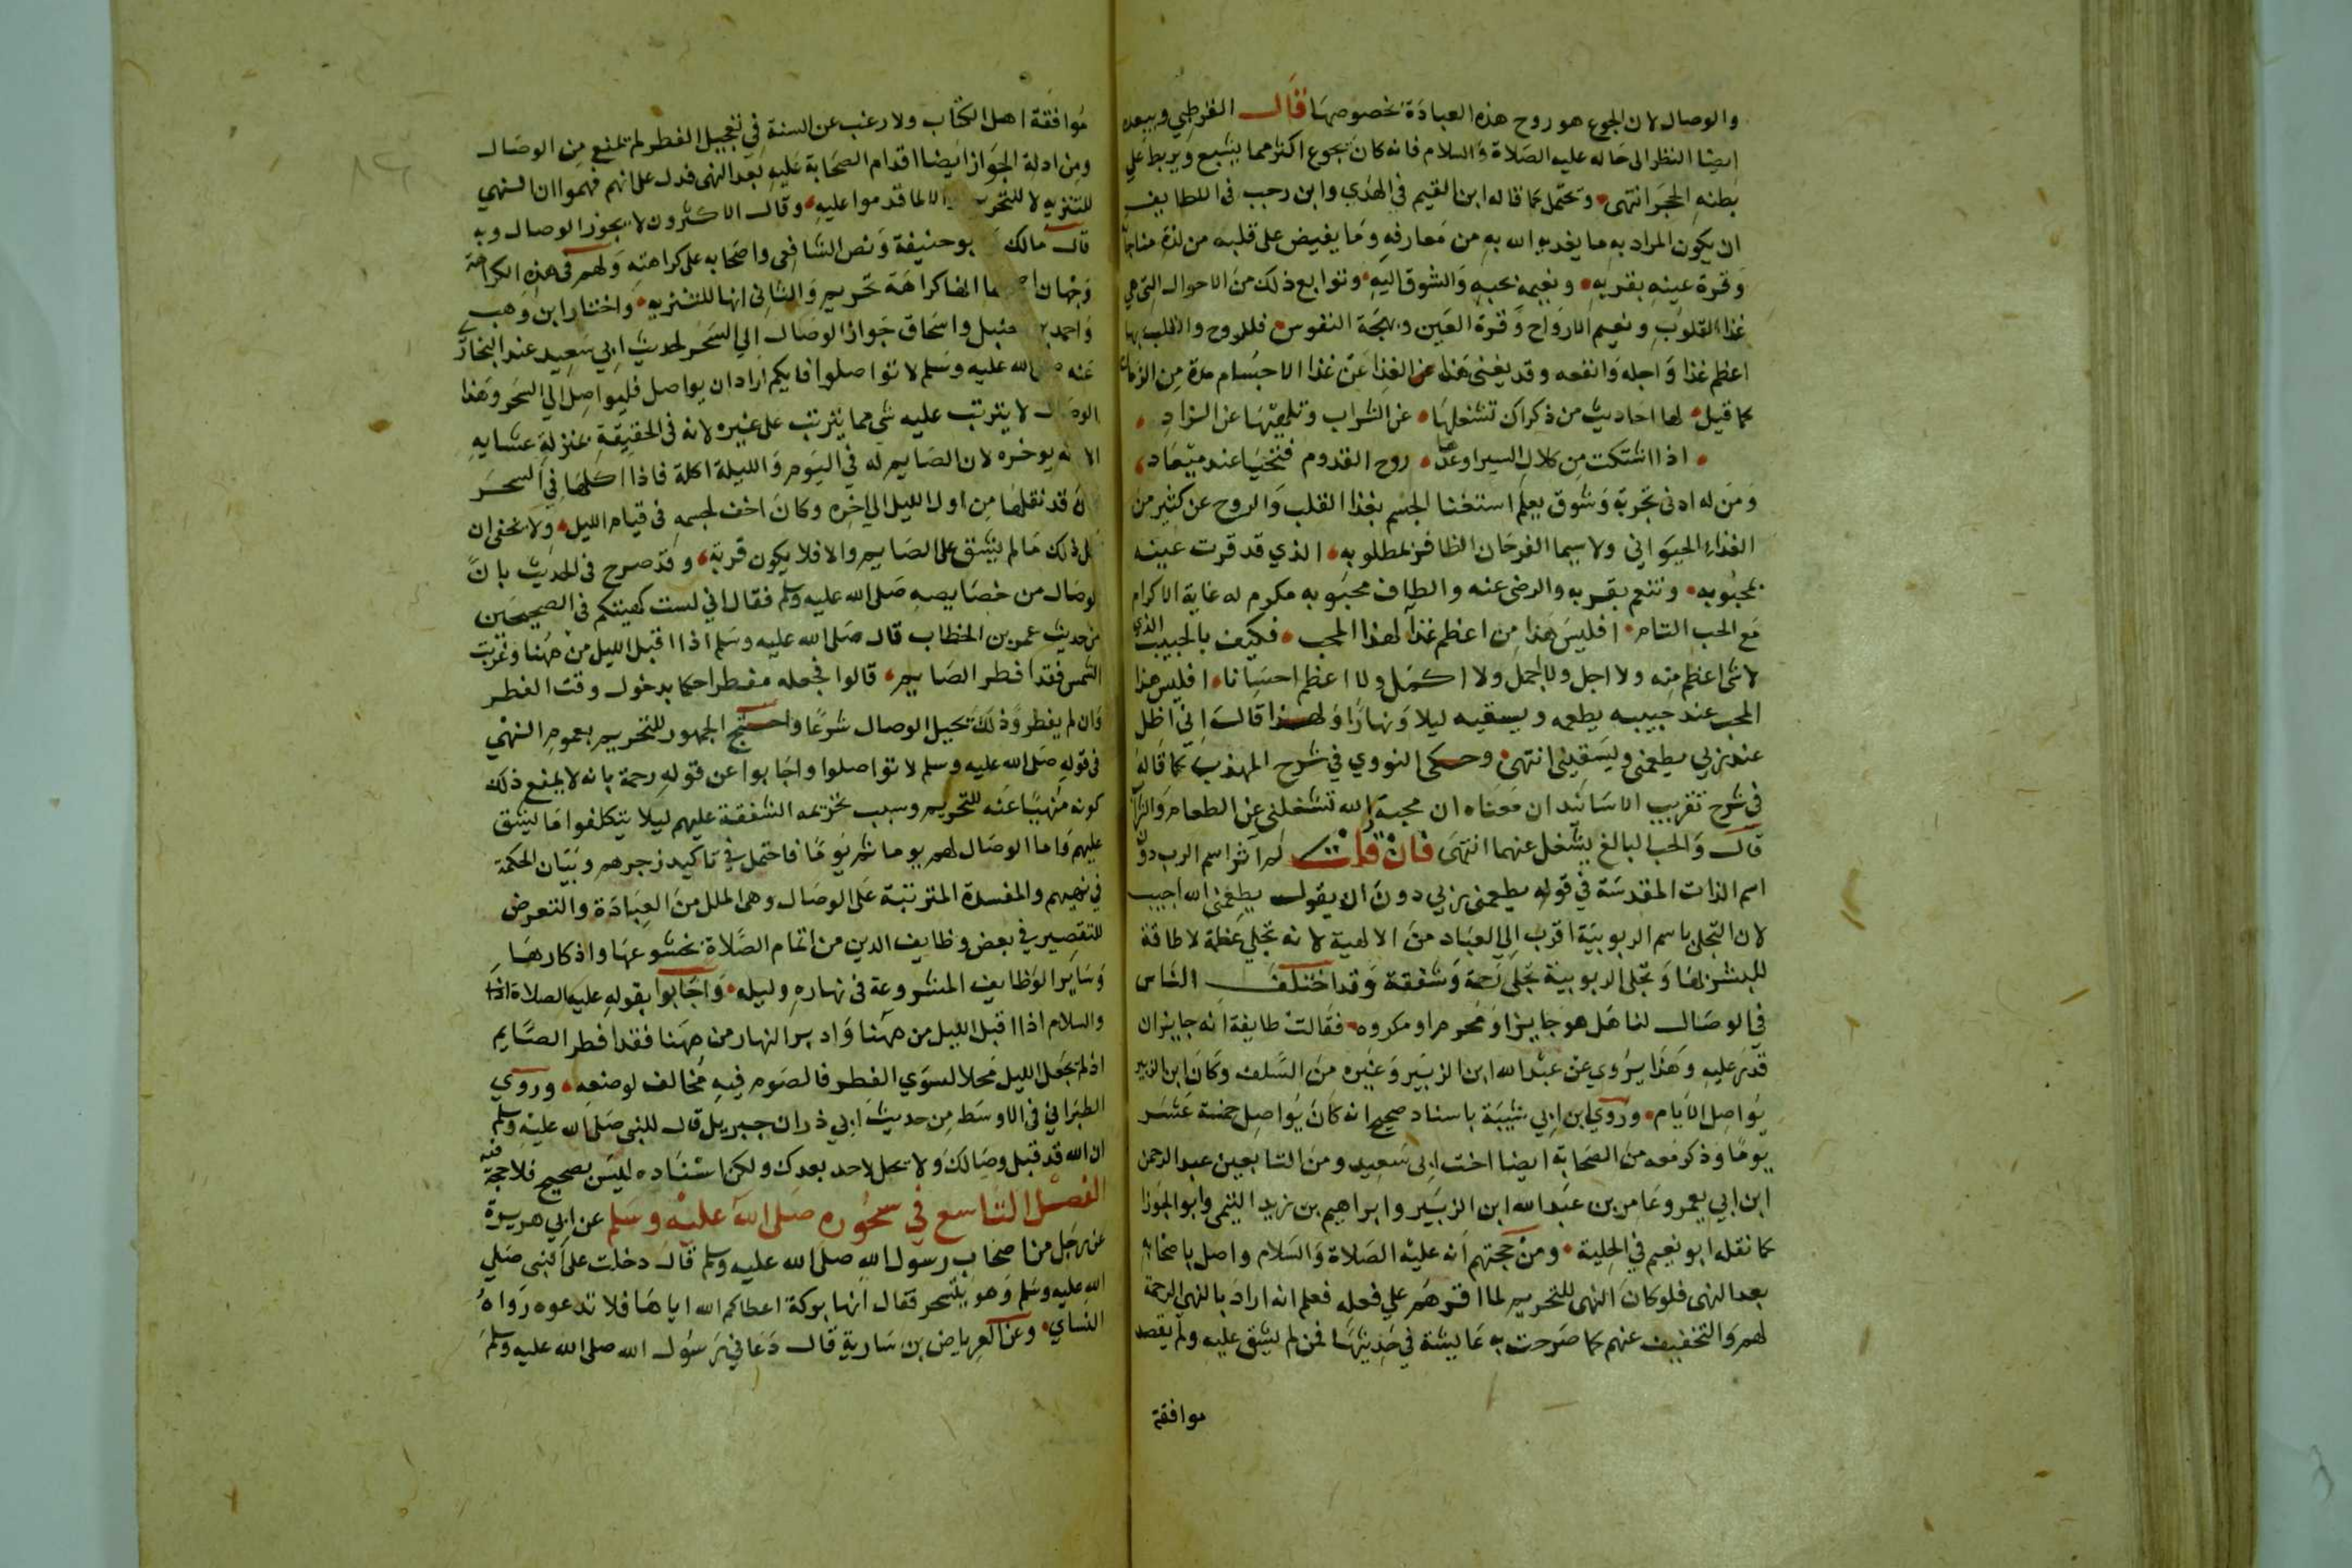 والوصال لان الجوع هو روح هذه العبادة بخصوصها قال القرطبي ويبعده
ايضا النظر الى حاله عليه الصلاة والسلام فانه كان يجوع اكثر مما يشبع ويربط على
بطنه الحجر انتهى وتحتمل كما قاله ابن القيم في الهدي وابن رجب في اللطايف
ان يكون المراد به ما يغذيه الله به من معارفه وما يفيض على قلبه من لذة مناجاته
وقرة عينه بقربه ونعيمه بحبه والشوق اليه وتوابع ذلك من الاحوال التي هي
غذا القلوب ونعيم الارواح وقرة العين وبهجة النفوس فللروح والقلب بها
اعظم غذا واجله وانفعه وقد يغني هذا الغذا عن غذا الاجسام مدة من الزمان
كما قيل لها احاديث من ذكراك تشغلها عن الشراب وتلهيها عن الزاد
اذا اشتكت من كلال السير اوعدها روح القدوم فتحيا عند ميعاد
ومن له ادنى تجربة وشوق يعلم استغنا الجسم بغذا القلب والروح عن كثير من
الغذاء الحيواني ولا سيما الفرحان الظافر بمطلوبه الذي قد قرت عينه
بمحبوبه وتنعم بقربه والرضى عنه والطاف محبوبه مكرم له غاية الاكرام
مع الحب التام افليس هذا من اعظم غذا لهذا المحب فكيف بالحبيب الذي
لا شي اعظم منه ولا اجل ولا اجمل ولا اكمل ولا اعظم احسانا افليس هذا
المحب عند حبيبه يطعمه ويسقيه ليلا ونهارا ولهذا قال اني اظل
عند ربي يطعمني ويسقيني انتهى وحكى النووي في شرح المهذب كما قاله
في شرح تقريب الاسانيد ان معناه ان محبة الله تشغلني عن الطعام والشراب
قال والحب البالغ يشغل عنهما انتهى فان قلت لم اثر اسم الرب دون
اسم الذات المقدسة في قوله يطعمني ربي دون ان يقول يطعمني الله اجيب
لان التجلي باسم الربوبية اقرب الى العباد من الالهية لانه تجلي عظمة لا طاقة
للبشر بها وتجلي الربوبية تجلي رحمة وشفقة وقد اختلف الناس
في الوصال لنا هل هو جايز او محرم او مكروه فقالت طايفة انه جايز ان
قدر عليه وهذا يروي عن عبد الله ابن الزبير وغيره من السلف وكان ابن الزبير
يواصل الايام وروي ابن ابي شيبة باسناد صحيح انه كان يواصل خمسة عشر
يوما وذكر معه من الصحابة ايضا اخت ابي سعيد ومن التابعين عبد الرحمن
ابن ابي يعمر وعامر بن عبد الله ابن الزبير وابراهيم بن زيد التيمي وابو الجوزا
كما نقله ابو نعيم في الحلية ومن حجتهم انه عليه الصلاة والسلام واصل باصحابه
بعد النهي فلو كان النهي للتحريم لما اقرهم على فعله فعلم انه اراد بالنهي الرحمة
لهم والتخفيف عنهم كما صرحت به عايشة في حديثها فمن لم يشق عليه ولم يقصد
موافقة
موافقة اهل الكتاب ولا رغب عن السنة في تعجيل الفطر لم تمنع من الوصال
ومن ادلة الجواز ايضا اقدام الصحابة عليه بعد النهي فدل على انهم فهموا ان النهي
للتنزيه لا للتحريم والا لما قدموا عليه وقال الاكثرون لا يجوز الوصال وبه
قال مالك وابو حنيفة ونص الشافعي واصحابه على كراهته ولهم في هذه الكراهة
وجهان انها كراهة تحريم والثاني انها للتنزيه واختار ابن وهب
واحمد بن حنبل واسحاق جواز الوصال الي السحر لحديث ابي سعيد عند البخاري
عنه صلى الله عليه وسلم لا تواصلوا فايكم اراد ان يواصل فليواصل الي السحر وهذا
الوصال لا يترتب عليه شي مما يترتب على غيره لانه في الحقيقة بمنزلة عشايه
الا انه يوخره لان الصايم له في اليوم والليلة اكلة فاذا اكلها في السحر
كان قد نقلها من اول الليل الي اخره وكان اخف لجسمه في قيام الليل ولا يخفى ان
محل ذلك ما لم يشق على الصايم والا فلا يكون قربة وقد صرح في الحديث بان
الوصال من خصايصه صلى الله عليه وسلم فقال اني لست كهيئتكم في الصحيحين
من حديث عمر بن الخطاب قال صلى الله عليه وسلم اذا اقبل الليل من ههنا وغربت
الشمس فقد افطر الصايم قالوا فجعله مفطرا حكما بدخول وقت الفطر
وان لم يفطر وذلك تحيل الوصال شرعا واحتج الجمهور للتحريم بعموم النهي
في قوله صلى الله عليه وسلم لا تواصلوا واجابوا عن قوله رحمة بانه لا يمنع ذلك
كونه منهيا عنه للتحريم وسبب تحريمه الشفقة عليهم ليلا يتكلفوا ما يشق
عليهم واما الوصال لهم يوما ثم يوما فاحتمل في تاكيد زجرهم وبيان الحكمة
في نهيهم والمفسدة المترتبة على الوصال وهي الملل من العبادة والتعرض
للتقصير في بعض وظايف الدين من اتمام الصلاة بخشوعها واذكارها
وساير الوظايف المشروعة في نهاره وليله واجابوا بقوله عليه الصلاة
والسلام اذا اقبل الليل من ههنا وادبر النهار من ههنا فقد افطر الصايم
اذ لم تجعل الليل محلا لسوي الفطر فالصوم فيه مخالف لوضعه وروي
الطبراني في الاوسط من حديث ابي ذر ان جبريل قال للنبي صلى الله عليه وسلم
ان الله قد قبل وصالك ولا يحل لاحد بعدك ولكن اسناده ليس بصحيح فلا حجة فيه
الفصل التاسع في سحوره صلى الله عليه وسلم عن ابي هريرة
عن رجل من اصحاب رسول الله صلى الله عليه وسلم قال دخلت على النبي صلي
الله عليه وسلم وهو يتسحر فقال انها بركة اعطاكم الله اياها فلا تدعوه رواه
النساي وعن العرباض بن سارية قال دعاني رسول الله صلى الله عليه وسلم